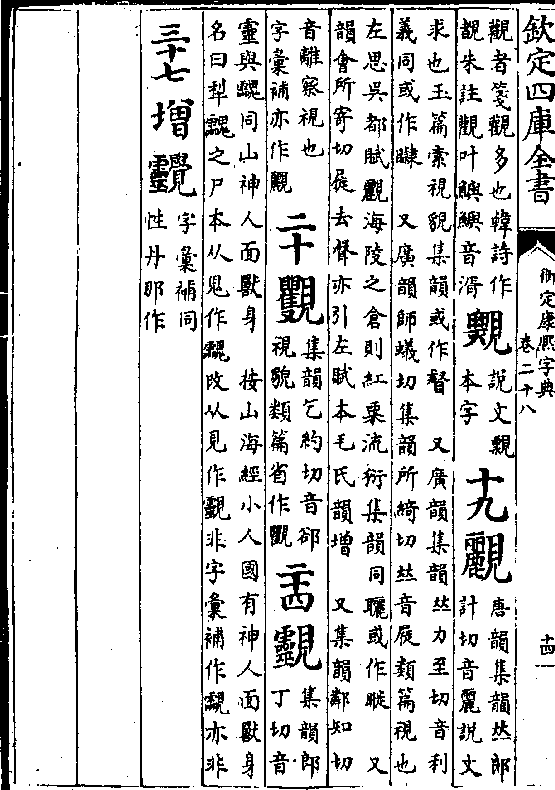 欽定四庫全書
御定康熙字典
卷二十八
十四
觀者箋觀多也韓詩作
覩朱註觀叶鱮鱮音湑
說文覶
本字
十九𧢄
唐韻集韻𠀤郎
計切音麗說文
求也玉篇索視貌集韻或作 又廣韻集韻𠀤力至切音利
義同或作睙 又廣韻師蟻切集韻所綺切𠀤音屣類篇視也
左思吳都賦𧢄海陵之倉則紅粟流衍集韻同矖或作睙 又
韻會所寄切屣去聲亦引左賦本毛氏韻增 又集韻鄰知切
音離察視也
字彙補亦作
二十
集韻乞約切音郤
視貌類篇省作
二十四
集韻郎
丁切音
靈與䰱同山神人面獸身 按山海經小人國有神人面獸身
名曰犁䰱之尸本从鬼作䰱改从見作 非字彙補作 亦非
三十七增
字彙補同
性丹那作